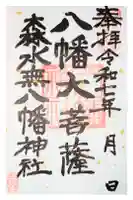 奉拝 令和七年 月 日
八幡大菩薩
森水無八幡神社